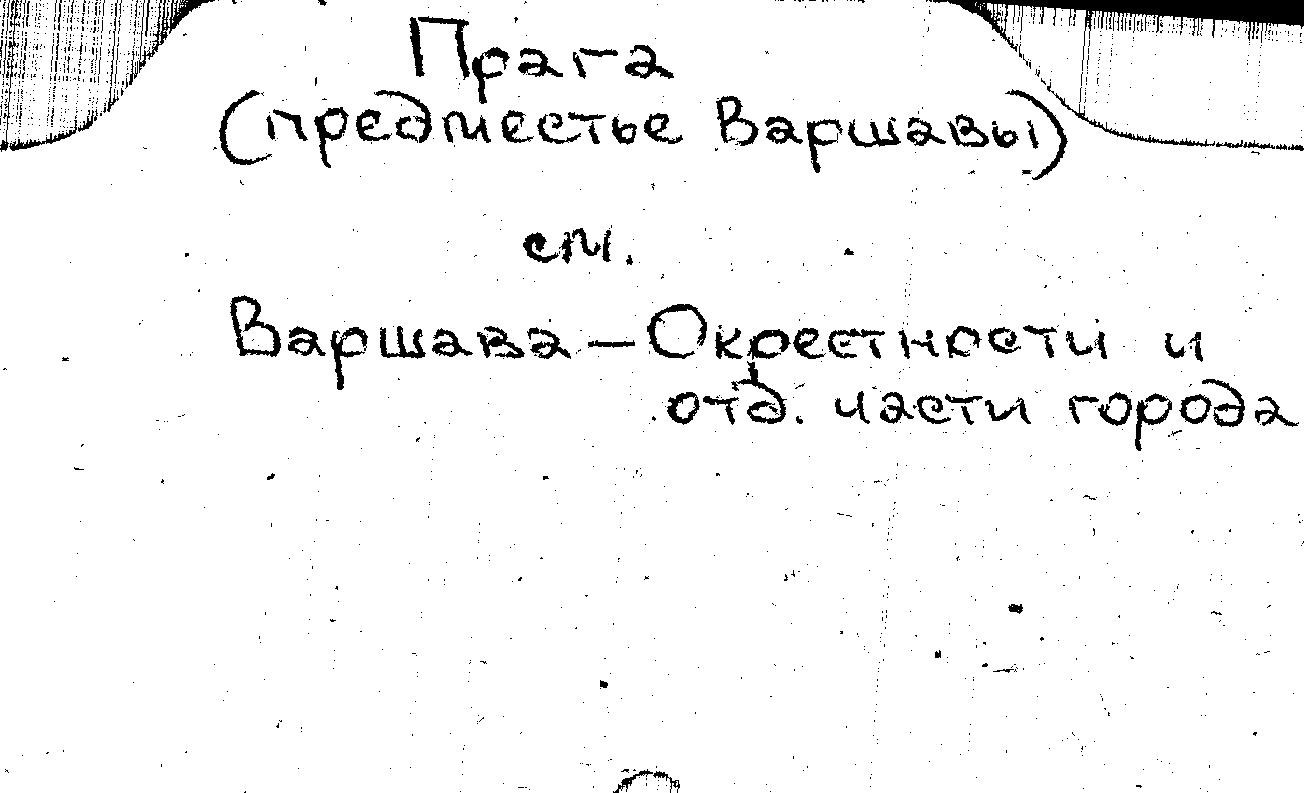 Прага
(предместье Варшавы)
см.
Варшава – Окрестности и
отд. части города